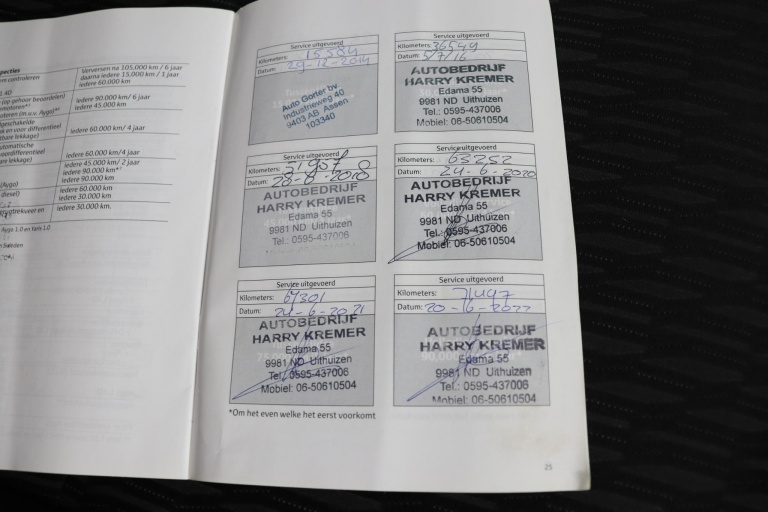 pecties
en controleren
Verversen na 105.000 km / 6 jaar
daarna iedere 15.000 km / 1 jaar
iedere 60.000 km
1.4D
(op gehoor beoordelen)
iedere 90.000 km/ 6 jaar
iedere 45.000 km
iedere 60.000 km/ 4 jaar
tbare lekkage)
iedere 60.000 km/4 jaar
iedere 45.000 km/ 2 jaar
iedere 90.000 km
iedere 90.000 km
(Aygo)
diesel)
iedere 60.000 km
iedere 30.000 km
iedere 30.000 km.
Aygo 1.0 en Yaris 1.0
Service uitgevoerd
Kilometers: 15584
Datum: 29-12-2014
Auto Gorter bv
Industrieweg 40
9403 AB Assen
103340
Service uitgevoerd
Kilometers: 36549
Datum: 5/7/16
AUTOBEDRIJF
HARRY KREMER
Edama 55
9981 ND Uithuizen
Tel.: 0595-437006
Mobiel: 06-50610504
Service uitgevoerd
Kilometers:
Datum:
AUTOBEDRIJF
HARRY KREMER
Edama 55
9981 ND Uithuizen
Tel.: 0595-437006
Service uitgevoerd
Kilometers: 63252
Datum: 24-6-2020
AUTOBEDRIJF
HARRY KREMER
Edama 55
9981 ND Uithuizen
Tel.: 0595-437006
Mobiel: 06-50610504
Service uitgevoerd
Kilometers: 67301
Datum: 24-6-2021
AUTOBEDRIJF
HARRY KREMER
Edama 55
9981 ND Uithuizen
Tel.: 0595-437006
Mobiel: 06-50610504
Service uitgevoerd
Kilometers: 71497
Datum: 20-6-2022
AUTOBEDRIJF
HARRY KREMER
Edama 55
9981 ND Uithuizen
Tel.: 0595-437006
Mobiel: 06-50610504
*Om het even welke het eerst voorkomt
25